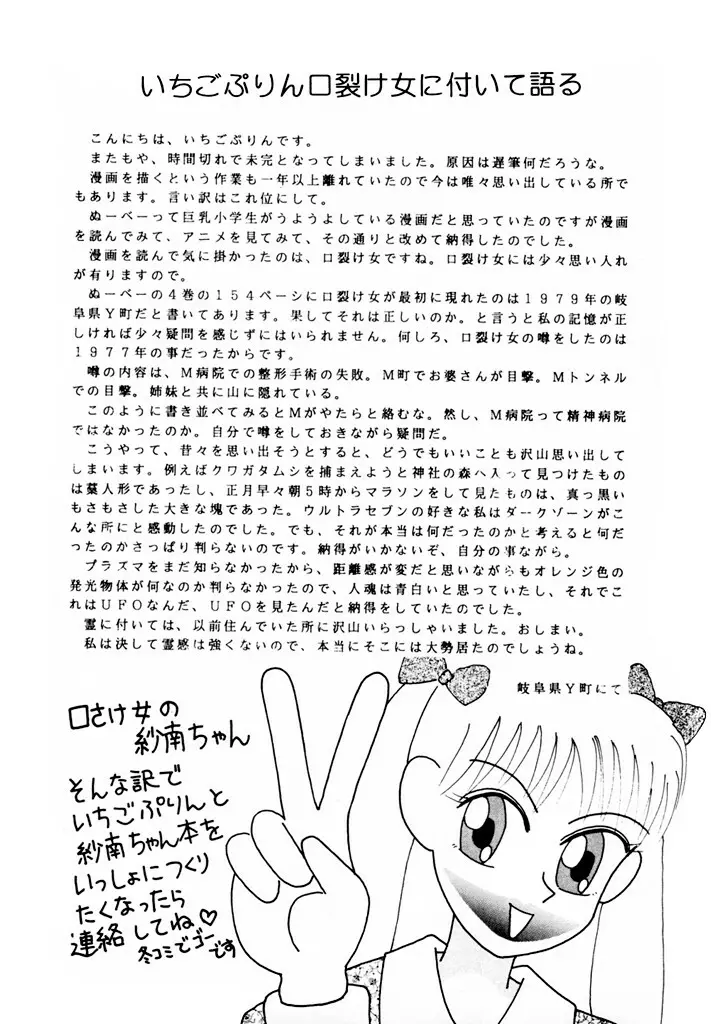 いちごぷりん口裂け女に付いて語る
こんにちは、いちごぷりんです。
またもや、時間切れで未完となってしまいました。原因は遅筆何だろうな。
漫画を描くという作業も一年以上離れていたので今は唯々思い出している所で
もあります。言い訳はこれ位にして。
ぬーべーって巨乳小学生がうようよしている漫画だと思っていたのですが漫画
を読んでみて、アニメを見てみて、その通りと改めて納得したのでした。
漫画を読んで気に掛かったのは、口裂け女ですね。口裂け女には少々思い入れ
が有りますので。
ぬーべーの4巻の154ページに口裂け女が最初に現れたのは1979年の岐
阜県Y町だと書いてあります。果してそれは正しいのか。と言うと私の記憶が正
しければ少々疑問を感じずにはいられません。何しろ、口裂け女の噂をしたのは
1977年の事だったからです。
噂の内容は、M病院での整形手術の失敗。M町でお婆さんが目撃。Mトンネル
での目撃。姉妹と共に山に隠れている。
このように書き並べてみるとMがやたらと絡むな。然し、M病院って精神病院
ではなかったのか。自分で噂をしておきながら疑問だ。
こうやって、昔々を思い出そうとすると、どうでもいいことも沢山思い出して
しまいます。例えばクワガタムシを捕まえようと神社の森へ入って見つけたもの
は墓人形であったし、正月早々朝5時からマラソンをして見たものは、真っ黒い
もさもさした大きな塊であった。ウルトラセブンの好きな私はダークゾーンがこ
んな所にと感動したのでした。でも、それが本当は何だったのかと考えると何だ
ったのかさっぱり判らないのです。納得がいかないぞ、自分の事ながら。
プラズマをまだ知らなかったから、距離感が変だと思いながらもオレンジ色の
発光物体が何なのか判らなかったので、人魂は青白いと思っていたし、それでこ
れはUFOなんだ、UFOを見たんだと納得をしていたのでした。
霊に付いては、以前住んでいた所に沢山いらっしゃいました。おしまい。
私は決して霊感は強くないので、本当にそこには大勢居たのでしょうね。
岐阜県Y町にて
口さけ女の
紗南ちゃん
そんな訳で
いちごぷりんと
紗南ちゃん本を
いっしょにつくり
たくなったら
連絡してね♡
冬コミでゴーです